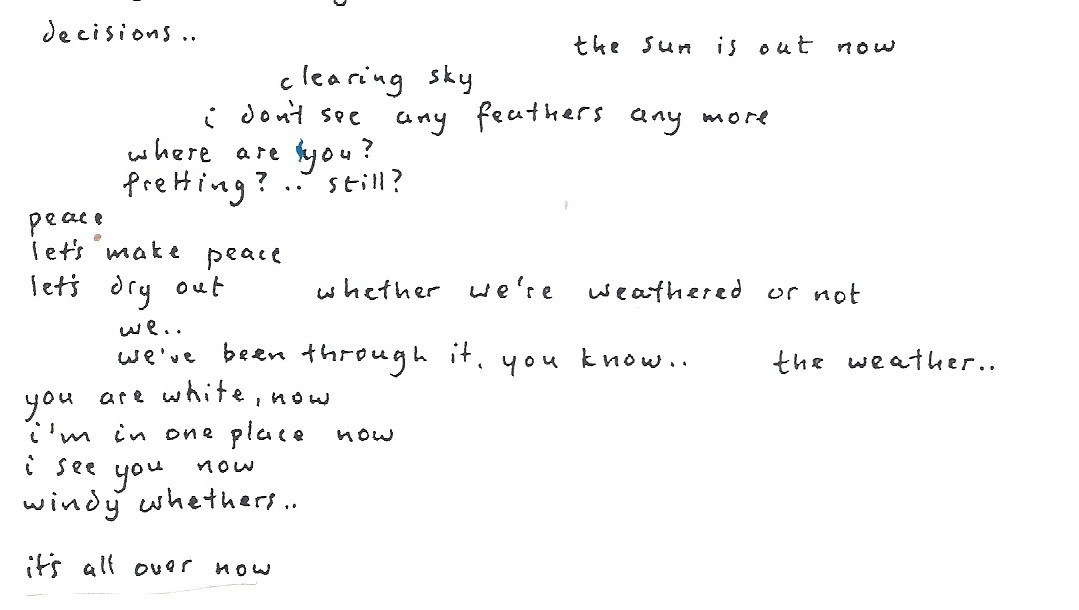 decisions..
the sun is out now
clearing sky
i don't see any feathers any more
where are you?
fretting?.. still?
peace
let's make peace
let's dry out whether we're weathered or not
we..
we've been through it, you know.. the weather..
you are white, now
i'm in one place now
i see you now
windy whethers..
it's all over now